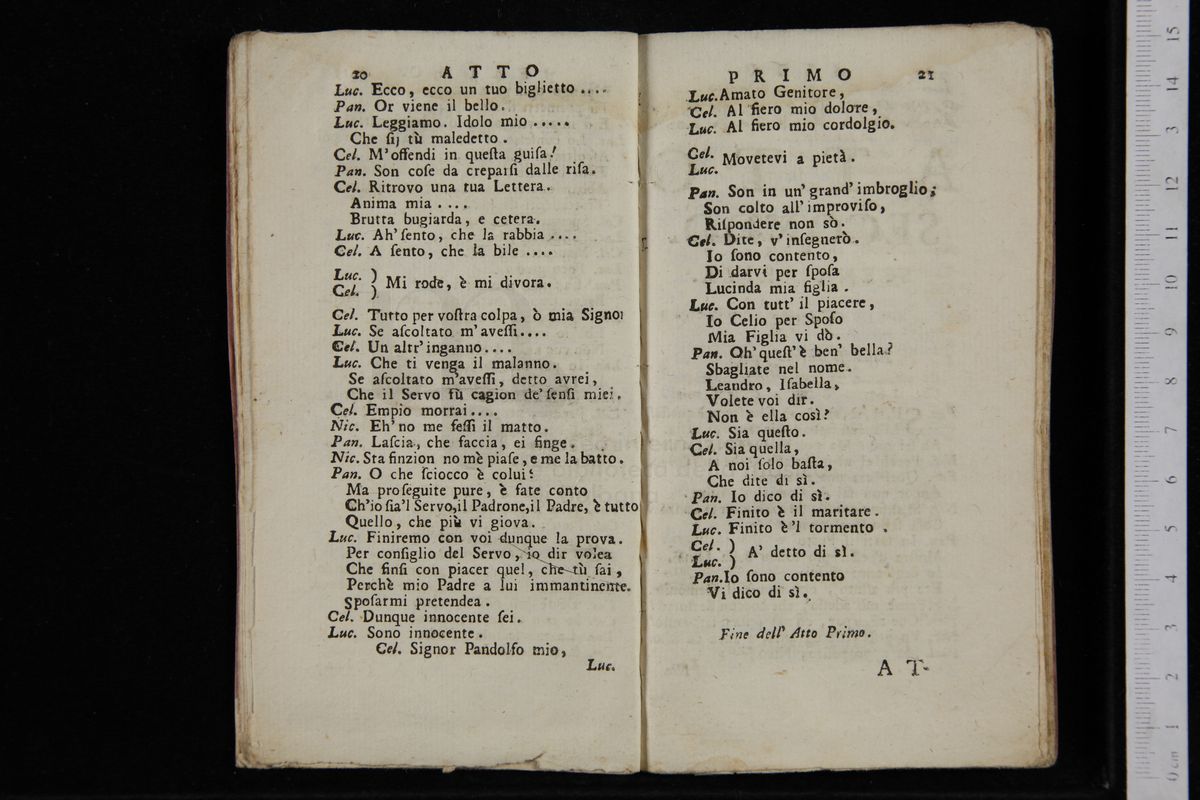 20 ATTO
Luc. Ecco, ecco un tuo biglietto ....
Pan. Or viene il bello.
Luc. Leggiamo. Idolo mio .....
Che ſij tù maledetto.
Cel. M'offendi in queſta guiſa!
Pan. Son coſe da creparſi dalle riſa.
Cel. Ritrovo una tua Lettera.
Anima mia ....
Brutta bugiarda, e cetera.
Luc. Ah' ſento, che la rabbia ....
Cel. A ſento, che la bile ....
Luc. )
Cel. ) Mi rode, è mi divora.
Cel. Tutto per voſtra colpa, ò mia Signor
Luc. Se aſcoltato m'aveſſi....
Cel. Un altr' inganno....
Luc. Che ti venga il malanno.
Se aſcoltato m'aveſſi, detto avrei,
Che il Servo fù cagion de' ſenſi miei.
Cel. Empio morrai....
Nic. Eh' no me feſſi il matto.
Pan. Laſcia, che faccia, ei finge.
Nic. Sta finzion no mè piaſe, e me la batto.
Pan. O che ſciocco è colui!
Ma proſeguite pure, è fate conto
Ch'io ſia'l Servo, il Padrone, il Padre, è tutto
Quello, che più vi giova.
Luc. Finiremo con voi dunque la prova.
Per conſiglio del Servo, io dir volea
Che finſi con piacer quel, che tù ſai,
Perchè mio Padre a lui immantinente.
Spoſarmi pretendea.
Cel. Dunque innocente ſei.
Luc. Sono innocente.
Cel. Signor Pandolfo mio,
Luc.
PRIMO 21
Luc. Amato Genitore,
Cel. Al fiero mio dolore,
Luc. Al fiero mio cordolgio.
Cel.
Luc. Movetevi a pietà.
Pan. Son in un' grand' imbroglio;
Son colto all' improviſo,
Riſpondere non sò.
Cel. Dite, v' inſegnerò.
Io ſono contento,
Di darvi per ſpoſa
Lucinda mia figlia.
Luc. Con tutt' il piacere,
Io Celio per Spoſo
Mia Figlia vi dò.
Pan. Oh' queſt' è ben' bella?
Sbagliate nel nome.
Leandro, Iſabella,
Volete voi dir.
Non è ella così?
Luc. Sia queſto.
Cel. Sia quella,
A noi ſolo baſta,
Che dite di sì.
Pan. Io dico di sì.
Cel. Finito è il maritare.
Luc. Finito è 'l tormento.
Cel. )
Luc. ) A' detto di sì.
Pan. Io ſono contento
Vi dico di sì.
Fine dell' Atto Primo.
AT-
0 cm 1 2 3 4 5 6 7 8 9 10 11 12 13 14 15